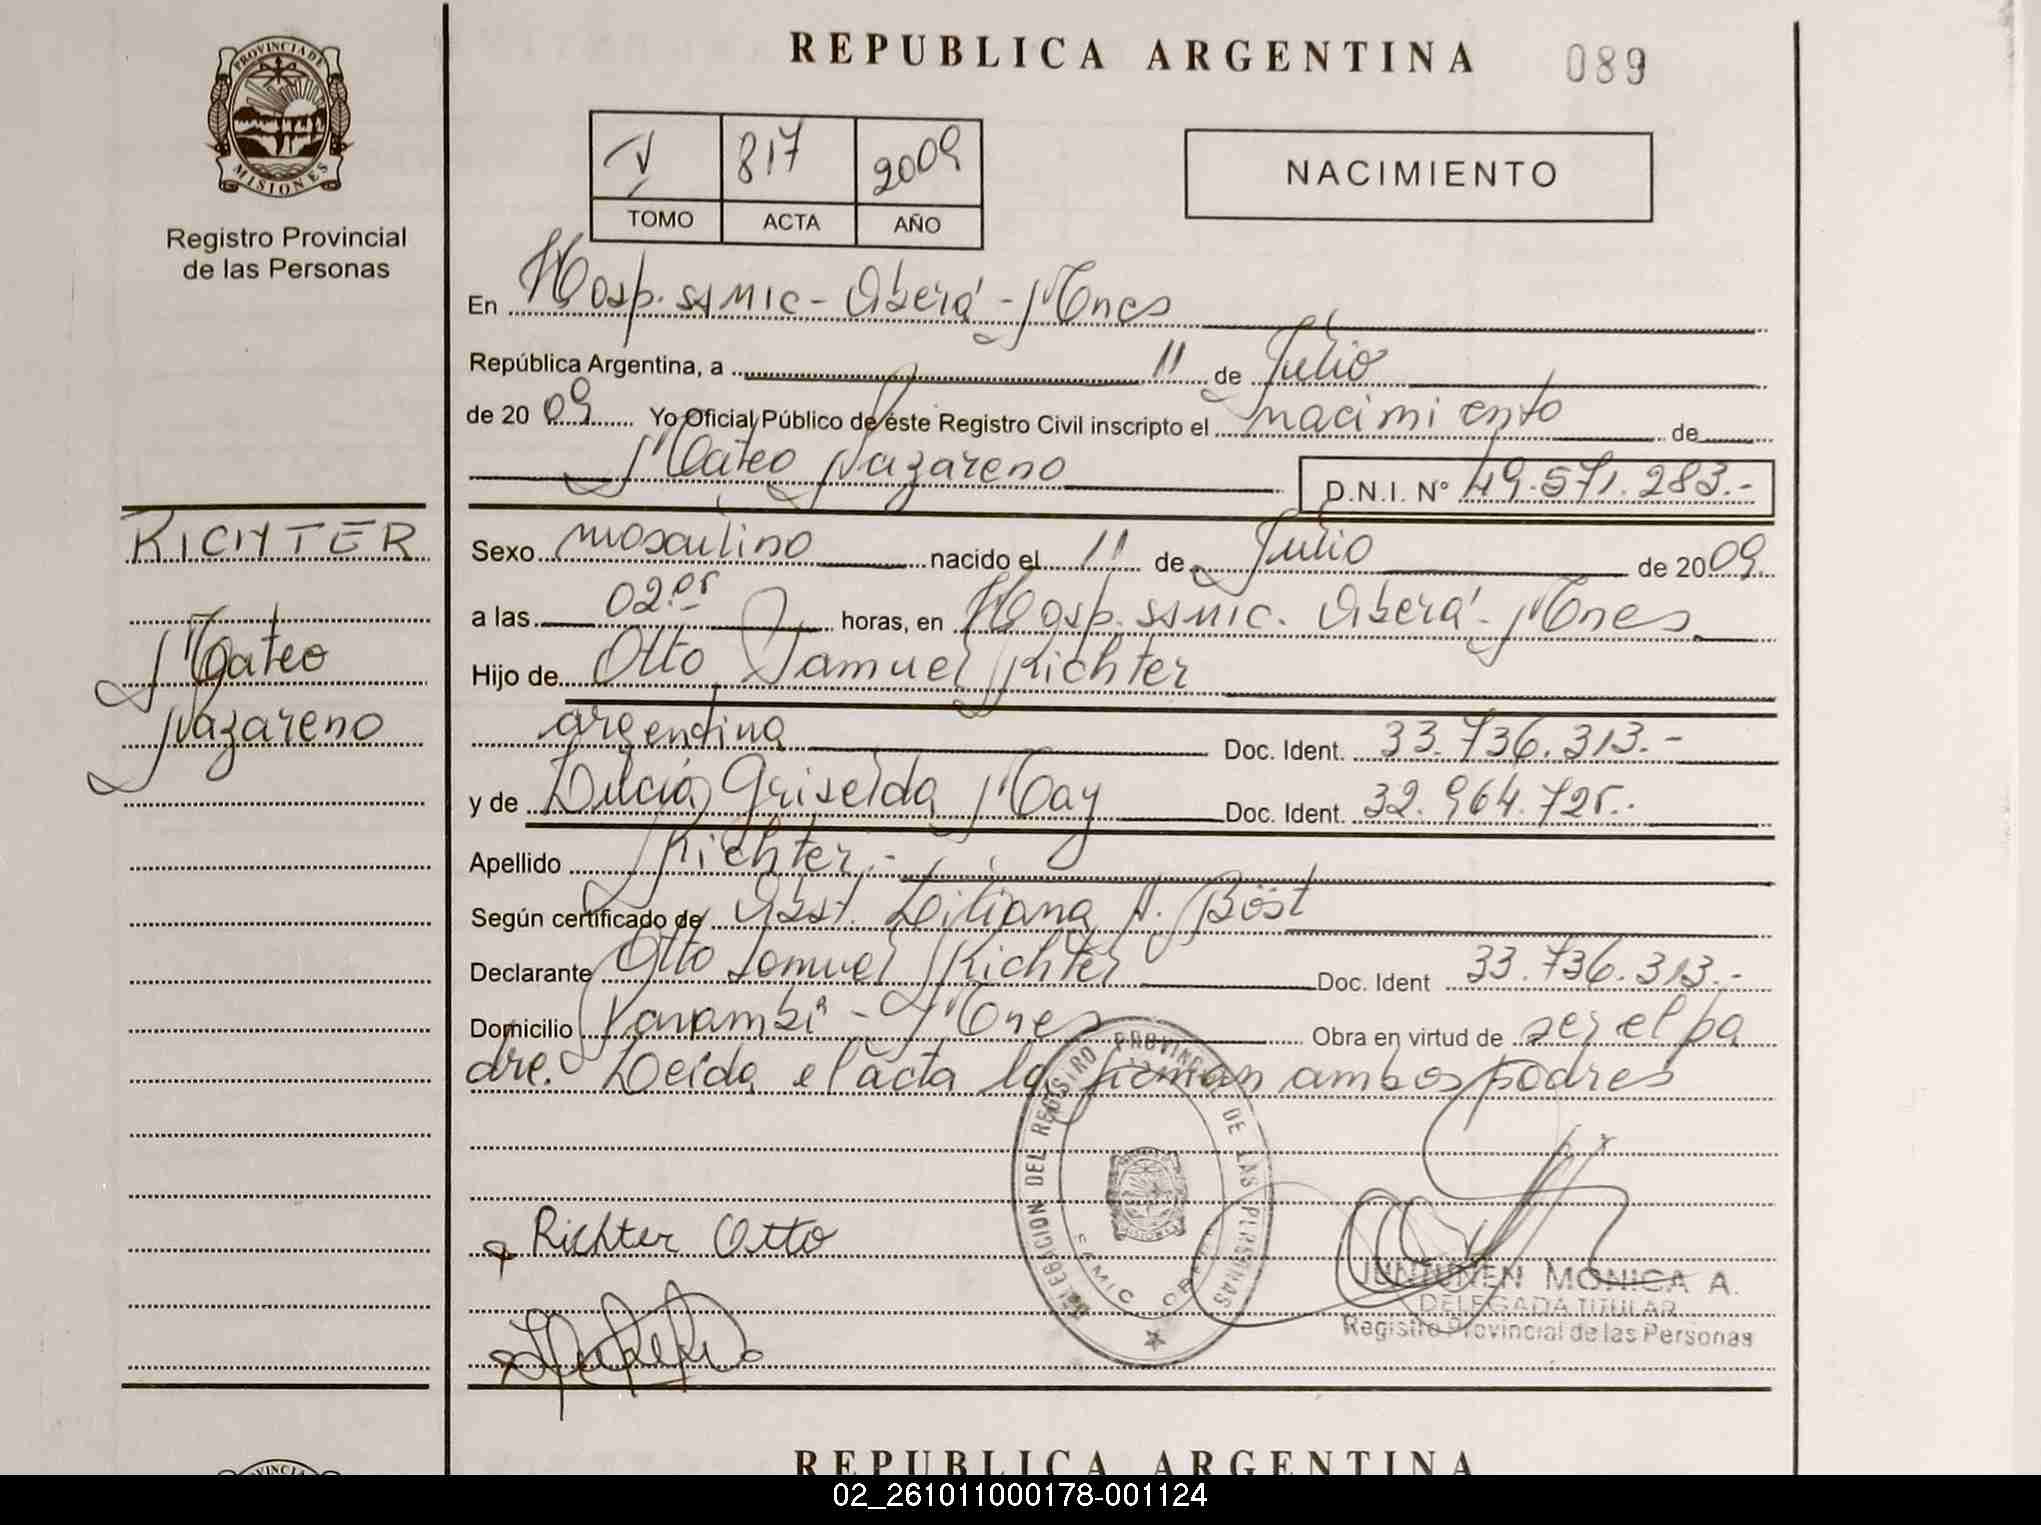 PROVINCIA DE
MISIONES
Registro Provincial
de las Personas
RICHTER
Mateo
Nazareno
REPUBLICA ARGENTINA 089
V 817 2009
TOMO ACTA AÑO
NACIMIENTO
En Hosp. SSMIC - Oberá - Mnes
República Argentina, a 11 de Julio
de 20 09 Yo Oficial Público de éste Registro Civil inscripto el nacimiento de
Mateo Nazareno D.N.I. N° 49.571.283.-
Sexo masculino nacido el 11 de Julio de 2009
a las 02.05 horas, en Hosp. SSMIC. Oberá - Mnes
Hijo de Otto Samuel Richter
argentina Doc. Ident. 33.736.313.-
y de Lucia Griselda May Doc. Ident. 32.964.725.-
Apellido Richter.-
Según certificado de Obst. Liliana A. Böst
Declarante Otto Samuel Richter Doc. Ident 33.736.313.-
Domicilio Panambí - Mnes Obra en virtud de ser el pa
dre. Leída el acta la firman ambos padres
DELEGACION DEL REGISTRO PROVINCIAL DE LAS PERSONAS
Richter Otto
JUNTUNEN MONICA A.
DELEGADA TITULAR
Registro Provincial de las Personas
PROVINCIA
REPUBLICA ARGENTINA
02_261011000178-001124